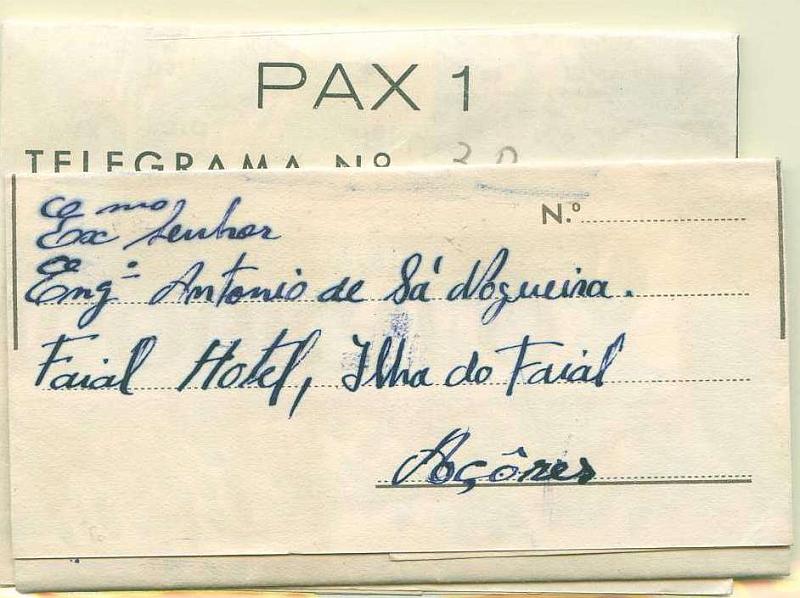 PAX 1
TELEGRAMA Nº 30
N.º
Exmo Senhor
Engº Antonio de Sá Nogueira.
Faial Hotel, Ilha do Faial
Açôres